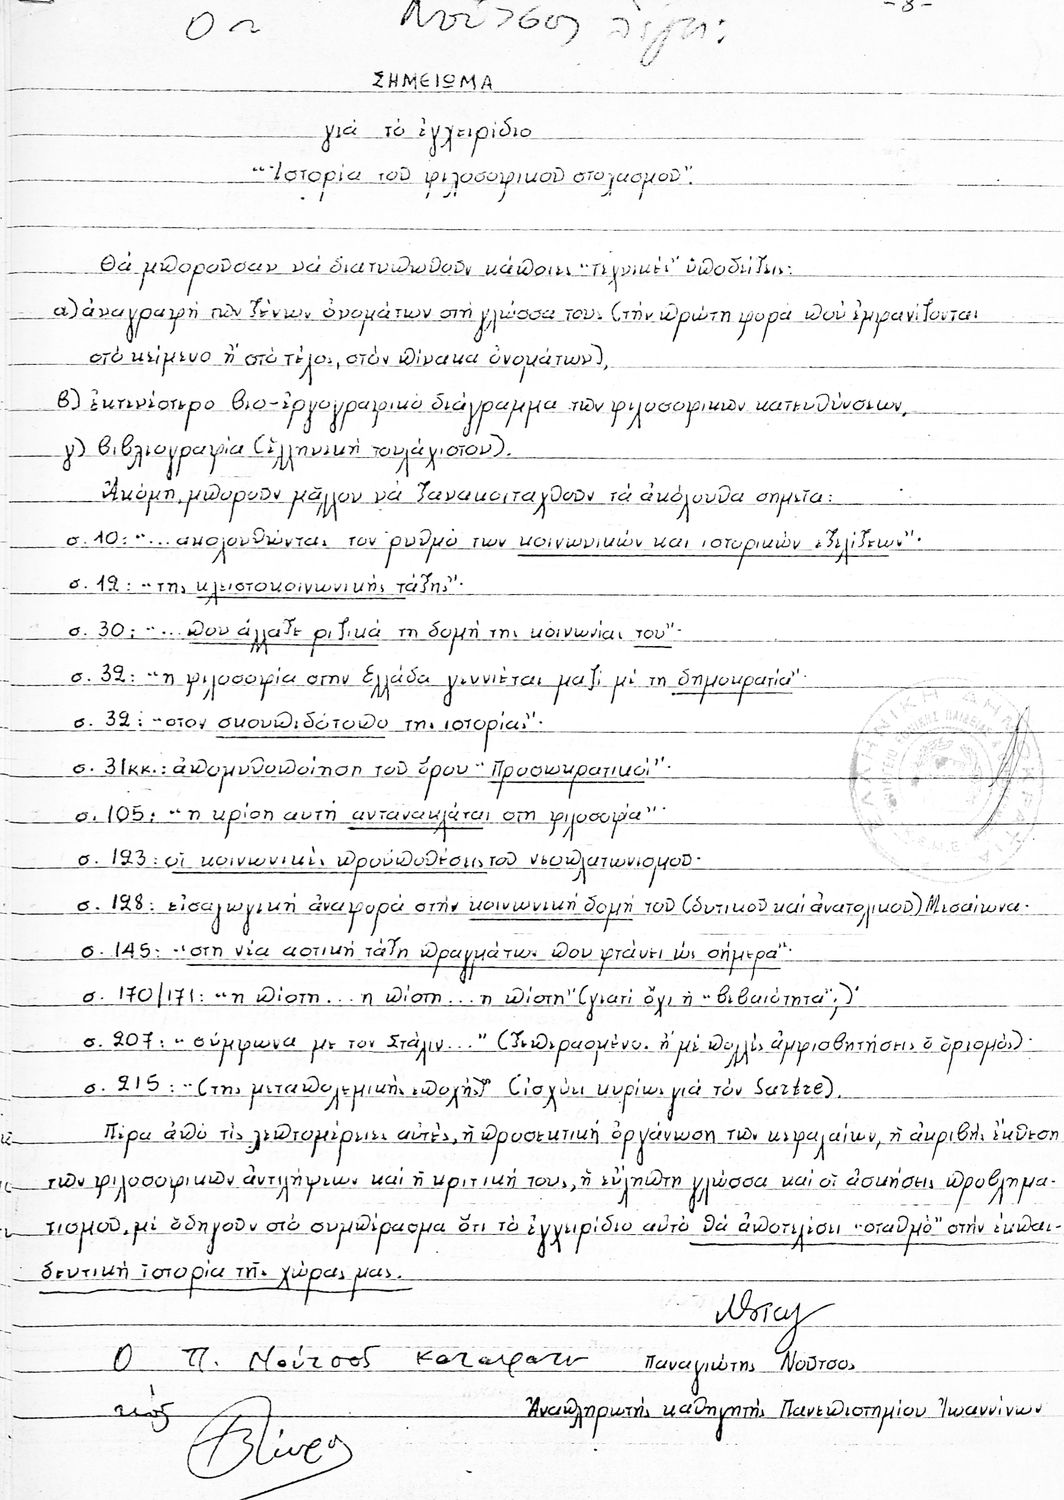 -8-
Ο κ Νούτσος λέγει:
ΣΗΜΕΙΩΜΑ
γιά τό ἐγχειρίδιο
"Ἱστορία τοῦ φιλοσοφικοῦ στοχασμοῦ".
Θά μποροῦσαν νά διατυπωθοῦν κάποιες "τεχνικές" ὑποδείξεις:
α) ἀναγραφή τῶν ξένων ὀνομάτων στή γλώσσα τους (τήν πρώτη φορά πού ἐμφανίζονται
στό κείμενο ἤ στό τέλος, στόν πίνακα ὀνομάτων),
β) ἐκτενέστερο βιο-εργογραφικό διάγραμμα τῶν φιλοσοφικῶν κατευθύνσεων,
γ) βιβλιογραφία (ἑλληνική τουλάχιστον).
Ἀκόμη, μποροῦν μᾶλλον νά ξανακοιταχθοῦν τά ἀκόλουθα σημεῖα:
σ. 10: "... ακολουθώντας τον ρυθμό των κοινωνικών και ιστορικών εξελίξεων"·
σ. 12: "της κλειστοκοινωνικής τάξης"·
σ. 30: "... που άλλαξε ριζικά τη δομή της κοινωνίας του"·
σ. 32: "η φιλοσοφία στην Ελλάδα γεννιέται μαζί με τη δημοκρατία"·
σ. 32: "στον σκουπιδότοπο της ιστορίας"·
σ. 31κκ.: ἀπομυθοποίηση τοῦ ὅρου "Προσωκρατικοί"·
σ. 105: "η κρίση αυτή αντανακλάται στη φιλοσοφία"·
σ. 123: οἱ κοινωνικές προϋποθέσεις τοῦ νεοπλατωνισμοῦ·
σ. 128: εἰσαγωγική ἀναφορά στήν κοινωνική δομή τοῦ (δυτικοῦ καί ἀνατολικοῦ) Μεσαίωνα·
σ. 145: "στη νέα αστική τάξη πραγμάτων που φτάνει ώς σήμερα"·
σ. 170/171: "η πίστη... η πίστη... η πίστη" (γιατί ὄχι ἡ "βεβαιότητα";)·
σ. 207: "σύμφωνα με τον Στάλιν..." (ξεπερασμένος ἤ μέ πολλές ἀμφισβητήσεις ὁ ὁρισμός)·
σ. 215: "(της μεταπολεμικής εποχής)" (ἰσχύει κυρίως γιά τόν Sartre).
Πέρα ἀπό τίς λεπτομέρειες αὐτές, ἡ προσεκτική ὀργάνωση τῶν κεφαλαίων, ἡ ἀκριβής ἔκθεση
τῶν φιλοσοφικῶν ἀντιλήψεων καί ἡ κριτική τους, ἡ εὔληπτη γλώσσα καί οἱ ἀσκήσεις προβλημα-
τισμοῦ, μέ ὁδηγοῦν στό συμπέρασμα ὅτι τό ἐγχειρίδιο αὐτό θά ἀποτελέσει "σταθμό" στήν ἐκπαι-
δευτική ἱστορία τῆς χώρας μας.
Ο Π. Νούτσος Παναγιώτης Νοῦτσος
Ἀναπληρωτής καθηγητής Πανεπιστημίου Ἰωαννίνων